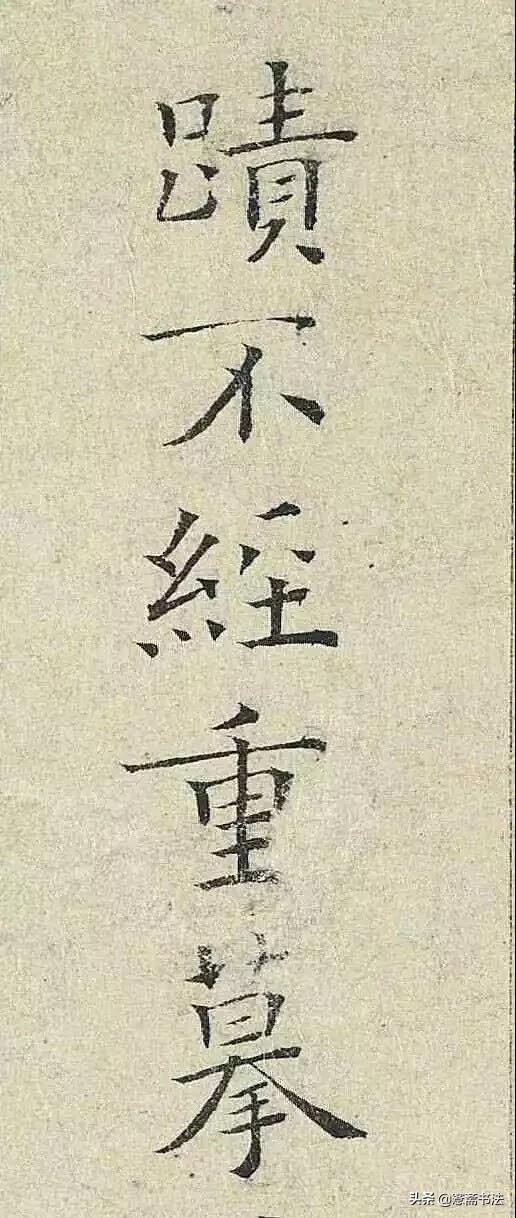 蹟不經重摹
头条@蹇斋书法